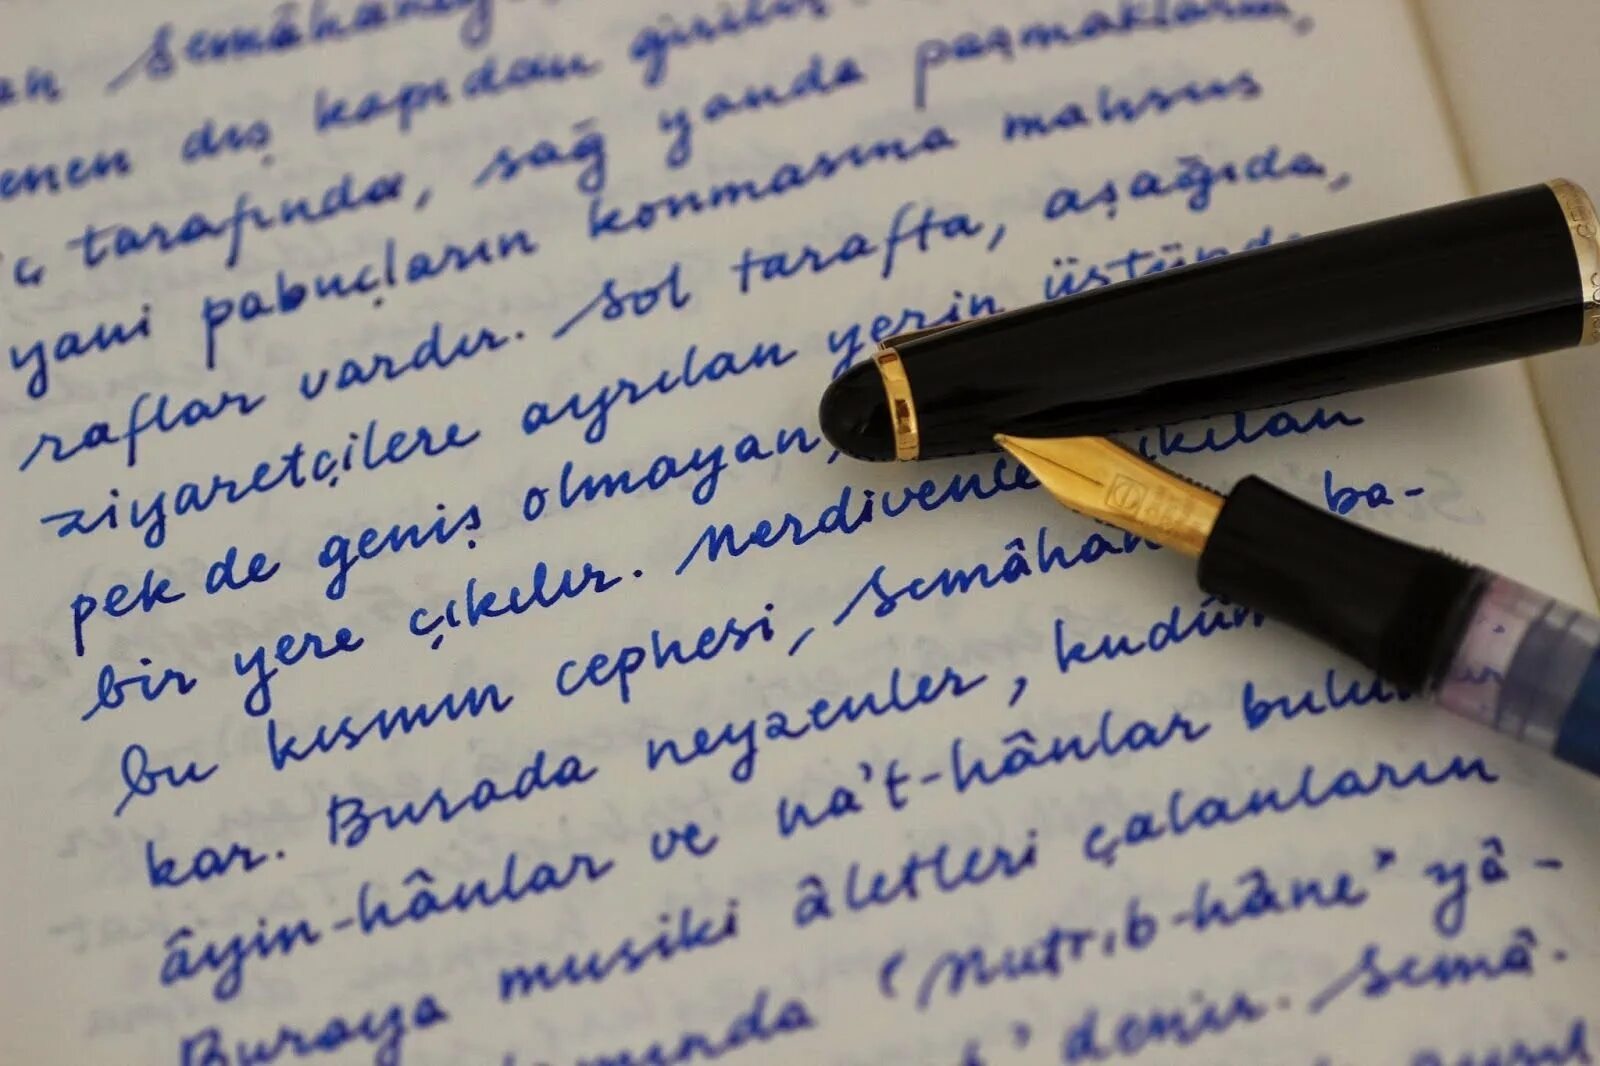 Semâhane
enen dış kapıdan girilin
ç tarafında, sağ yanda paşmakların,
yani pabuçların konmasına mahsus
raflar vardır. Sol tarafta, aşağıda,
ziyaretçilere ayrılan yerin üstünde
pek de geniş olmayan,
bir yere çıkılır. Merdivenle çıkılan
bu kısmın cephesi, Semâhâne ba-
kar. Burada neyzenler, kudüm
âyin-hânlar ve na't-hânlar bulunur
Buraya musiki âletleri çalanların
"Mutrıb-hâne" yâ-
denir. Semâ